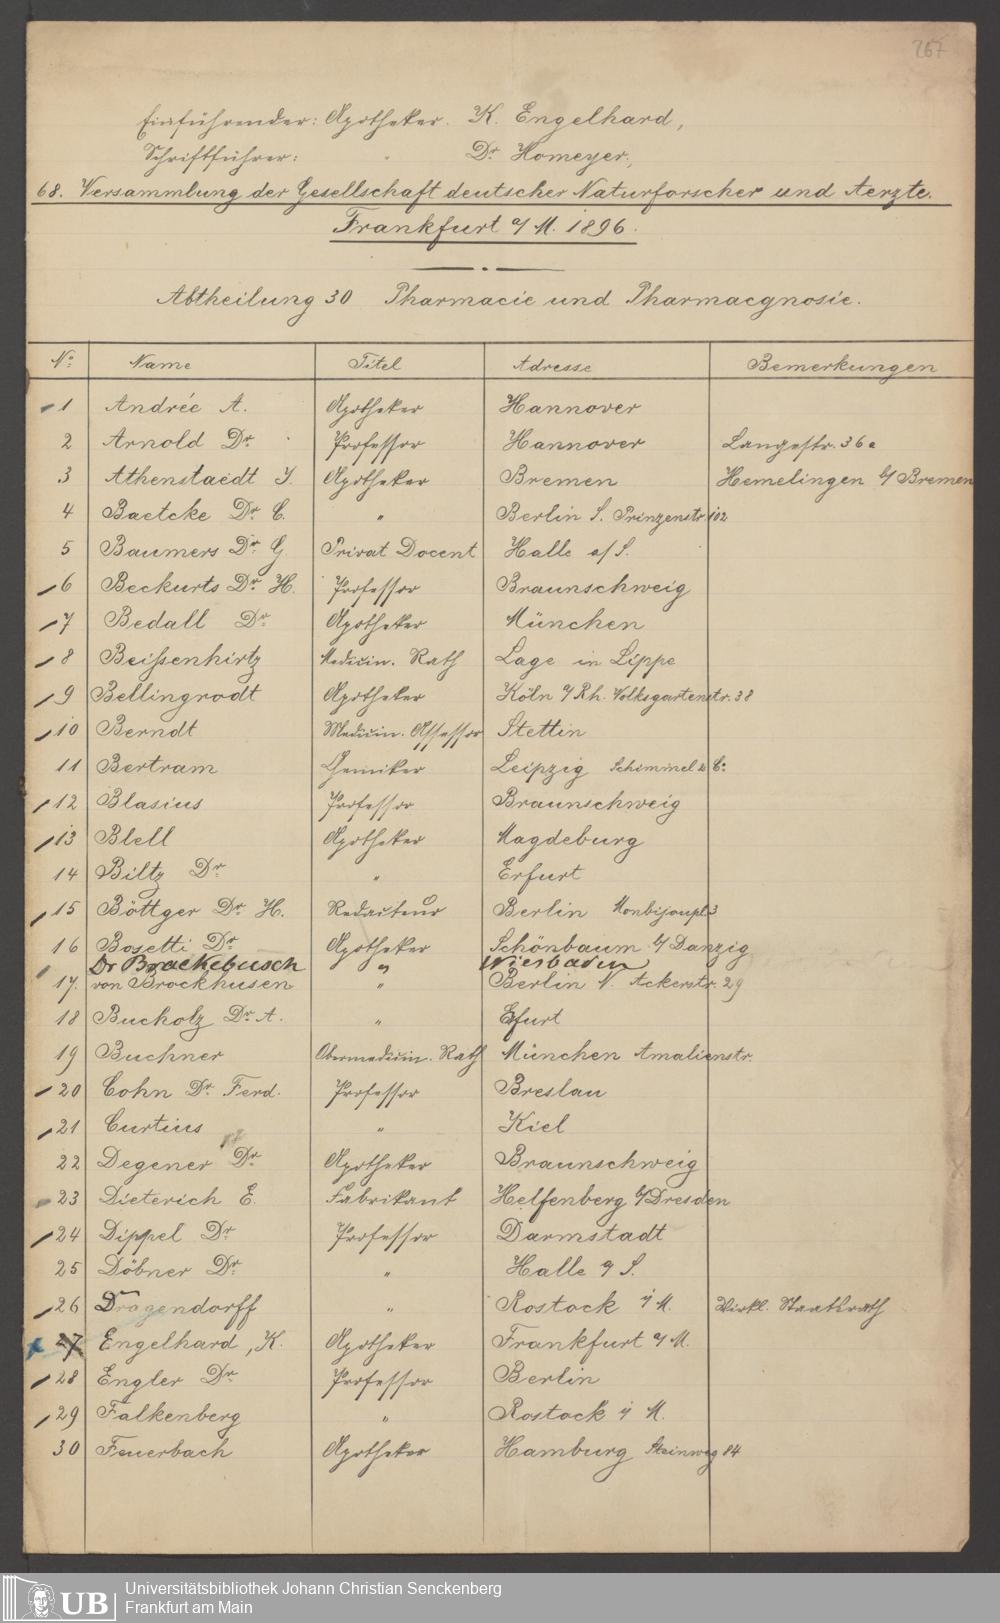 267
Einführender: Apotheker K. Engelhard,
Schriftführer: " Dr Homeyer,
68. Versammlung der Gesellschaft deutscher Naturforscher und Aerzte.
Frankfurt a/M. 1896.
Abtheilung 30 Pharmacie und Pharmacgnosie.
No: Name Titel Adresse Bemerkungen
1 Andrée A. Apotheker Hannover
2 Arnold Dr. Professor Hannover Langestr. 36a
3 Athenstaedt J. Apotheker Bremen Hemelingen b/Bremen
4 Baetcke Dr. C. " Berlin S. Prinzenstr. 102
5 Baumers Dr. G. Privat Docent Halle a/S.
6 Beckurts Dr. H. Professor Braunschweig
7 Bedall Dr. Apotheker München
8 Beissenhirtz Medicin. Rath Lage in Lippe
9 Bellingrodt Apotheker Köln a/Rh. Volksgartenstr. 38
10 Berndt Medicin. Assessor Stettin
11 Bertram Chemiker Leipzig Schimmel & Co:
12 Blasius Professor Braunschweig
13 Blell Apotheker Magdeburg
14 Biltz Dr. " Erfurt
15 Böttger Dr. H. Redacteur Berlin Monbijoupl. 3
16 Bosetti Dr. Apotheker Schönbaum b/Danzig
Dr Brackebusch " Wiesbaden
17. von Brockhusen " Berlin N. Ackerstr. 29
18 Bucholz Dr. A. " Efurt
19 Buchner Obermedicin. Rath München Amalienstr.
20 Cohn Dr. Ferd. Professor Breslau
21 Curtius " Kiel
22 Degener Dr. Apotheker Braunschweig
23 Dieterich E. Fabrikant Helfenberg b/Dresden
24 Dippel Dr. Professor Darmstadt
25 Döbner Dr. " Halle a/S.
26 Dragendorff " Rostock i/M. Wirkl. Staatsrath
27 Engelhard, K. Apotheker Frankfurt a/M.
28 Engler Dr. Professor Berlin
29 Falkenberg " Rostock i/M.
30 Feuerbach Apotheker Hamburg Steinweg 84
UB Universitätsbibliothek Johann Christian Senckenberg
Frankfurt am Main